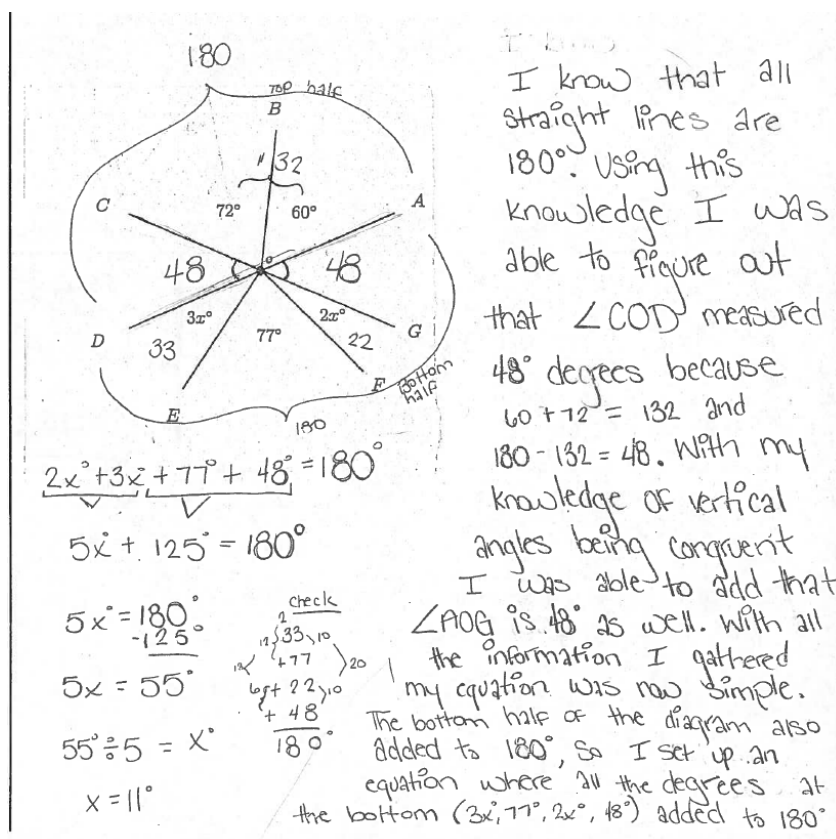 180
Top half
B
132
C
72°
60°
A
48
O
48
D
3x°
77°
2x°
G
33
22
E
F
Bottom
half
180
2x° + 3x° + 77° + 48° = 180°
5x° + 125° = 180°
5x° = 180°
-125°
5x = 55°
55° ÷ 5 = x°
x = 11°
check
2
12
33
10
+77
20
12
6
+ 22
10
+ 48
180°
I know that all
straight lines are
180°. Using this
knowledge I was
able to figure out
that ∠COD measured
48° degrees because
60 + 72 = 132 and
180 - 132 = 48. With my
knowledge of vertical
angles being congruent
I was able to add that
∠AOG is 48° as well. With all
the information I gathered
my equation was now simple.
The bottom half of the diagram also
added to 180°, So I set up an
equation where all the degrees at
the bottom (3x°, 77°, 2x°, 48°) added to 180°